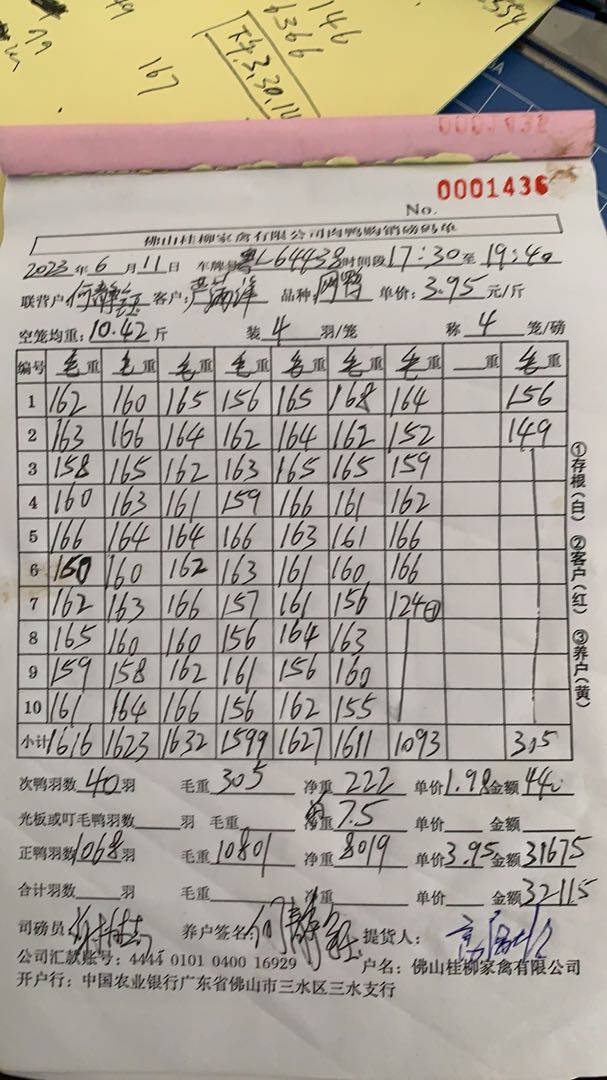 49
79
146
6366
74.3.30.12
167
5554
0001432
No. 0001436
佛山桂柳家禽有限公司肉鸭购销磅码单
2023年6月11日 车牌号粤L64438时间段17:30至19:40
联营户 何静 客户: 品种 单价: 3.95 元/斤
空笼均重: 10.42 斤 装 4 羽/笼 称 4 笼/磅
编号 毛重 毛重 毛重 毛重 毛重 毛重 毛重 重 毛重
1 162 160 165 156 165 168 164 156
2 163 166 164 162 164 162 152 149
3 158 165 162 163 165 165 159
4 160 163 161 159 166 161 162
5 166 164 164 166 163 161 166
6 150 160 162 163 161 160 166
7 162 163 166 157 161 156 124
8 165 160 160 156 164 163
9 159 158 162 161 156 160
10 161 164 166 156 162 155
小计 1616 1623 1632 1599 1627 1611 1093 305
①存根(白) ②客户(红) ③养户(黄)
次鸭羽数 40 羽 毛重 305 净重 222 单价 1.98 金额 440
光板或叮毛鸭羽数 羽 毛重 净重 7.5 单价 金额
正鸭羽数 1068 羽 毛重 10801 净重 8019 单价 3.95 金额 31675
合计羽数 羽 毛重 净重 单价 金额 32115
司磅员: 养户签名: 何静 提货人:
公司汇款账号: 4444 0101 0400 16929 户名: 佛山桂柳家禽有限公司
开户行: 中国农业银行广东省佛山市三水区三水支行